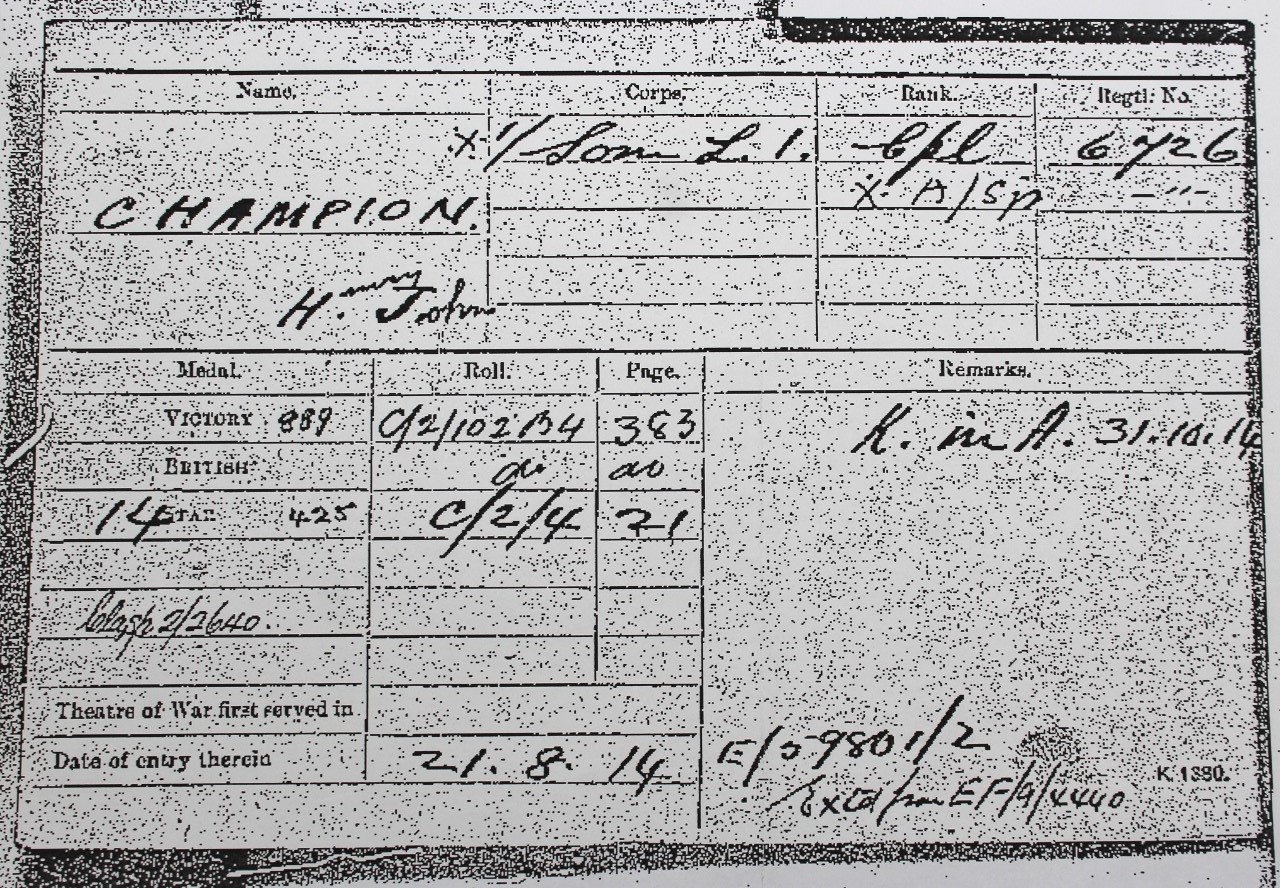 Name. Corps. Rank. Regtl: No.
X 1/ Som L. I. Cpl 6726
X A/Sjt —"—
CHAMPION.
Henry John
Medal. Roll. Page. Remarks.
VICTORY 889 C/2/102B4 383 K. in A. 31.10.14
BRITISH do do
14 STAR 425 C/2/4 21
Clasp 2/2640.
Theatre of War first served in
Date of entry therein 21. 8. 14
E/5980 1/2
K 1380.
Extd from EF/9/4440